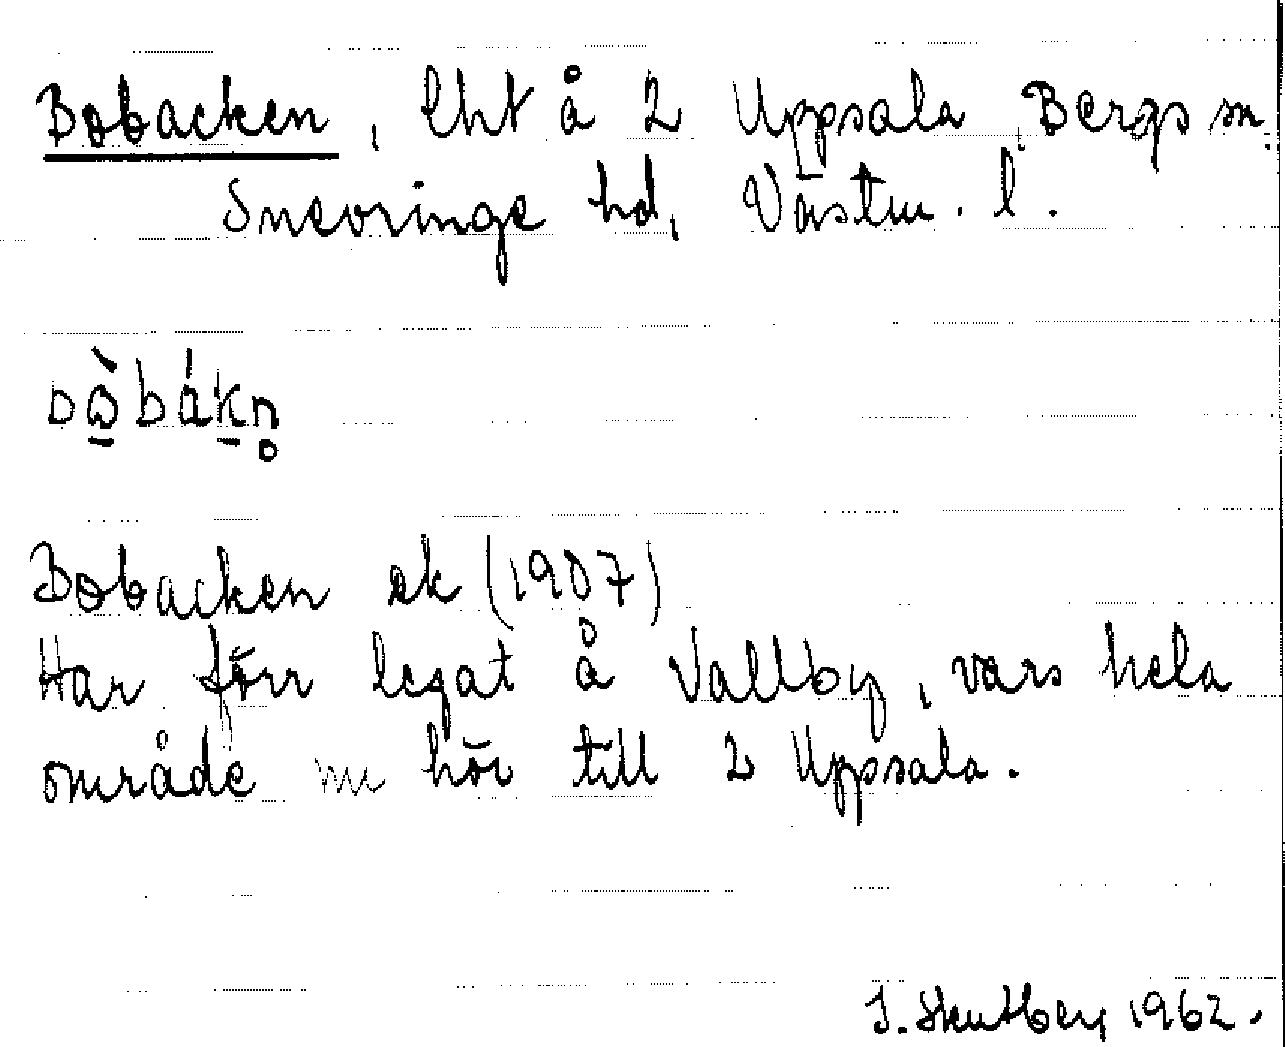 Bobacken, lht å 2 Uppsala, Bergs sn.
Snevringe hd, Västm. l.
bò̱báḵn̥
Bobacken ek (1907)
Har förr legat å Vallby, vars hela
område nu hör till 2 Uppsala.
J. Skutberg 1962.